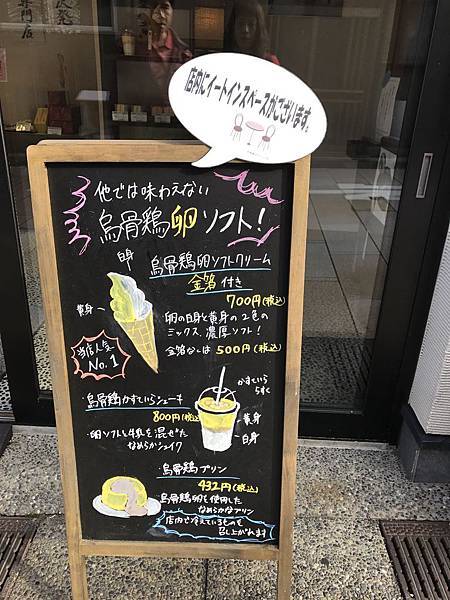 専門店
店内にイートインスペースがございます。
他では味わえない
烏骨鶏卵ソフト!
白身
烏骨鶏卵ソフトクリーム
金箔付き
700円(税込)
黄身
卵の白身と黄身の2色の
ミックス、濃厚ソフト!
金箔なしは 500円(税込)
当店人気
No.1
・烏骨鶏かすていらシェーキ
800円(税込)
・卵ソフトと牛乳を混ぜた
なめらかシェイク
かすていら
らすく
黄身
白身
・烏骨鶏プリン
432円(税込)
烏骨鶏卵を使用した
なめらかプリン
店内で冷えているものも
召し上がれます